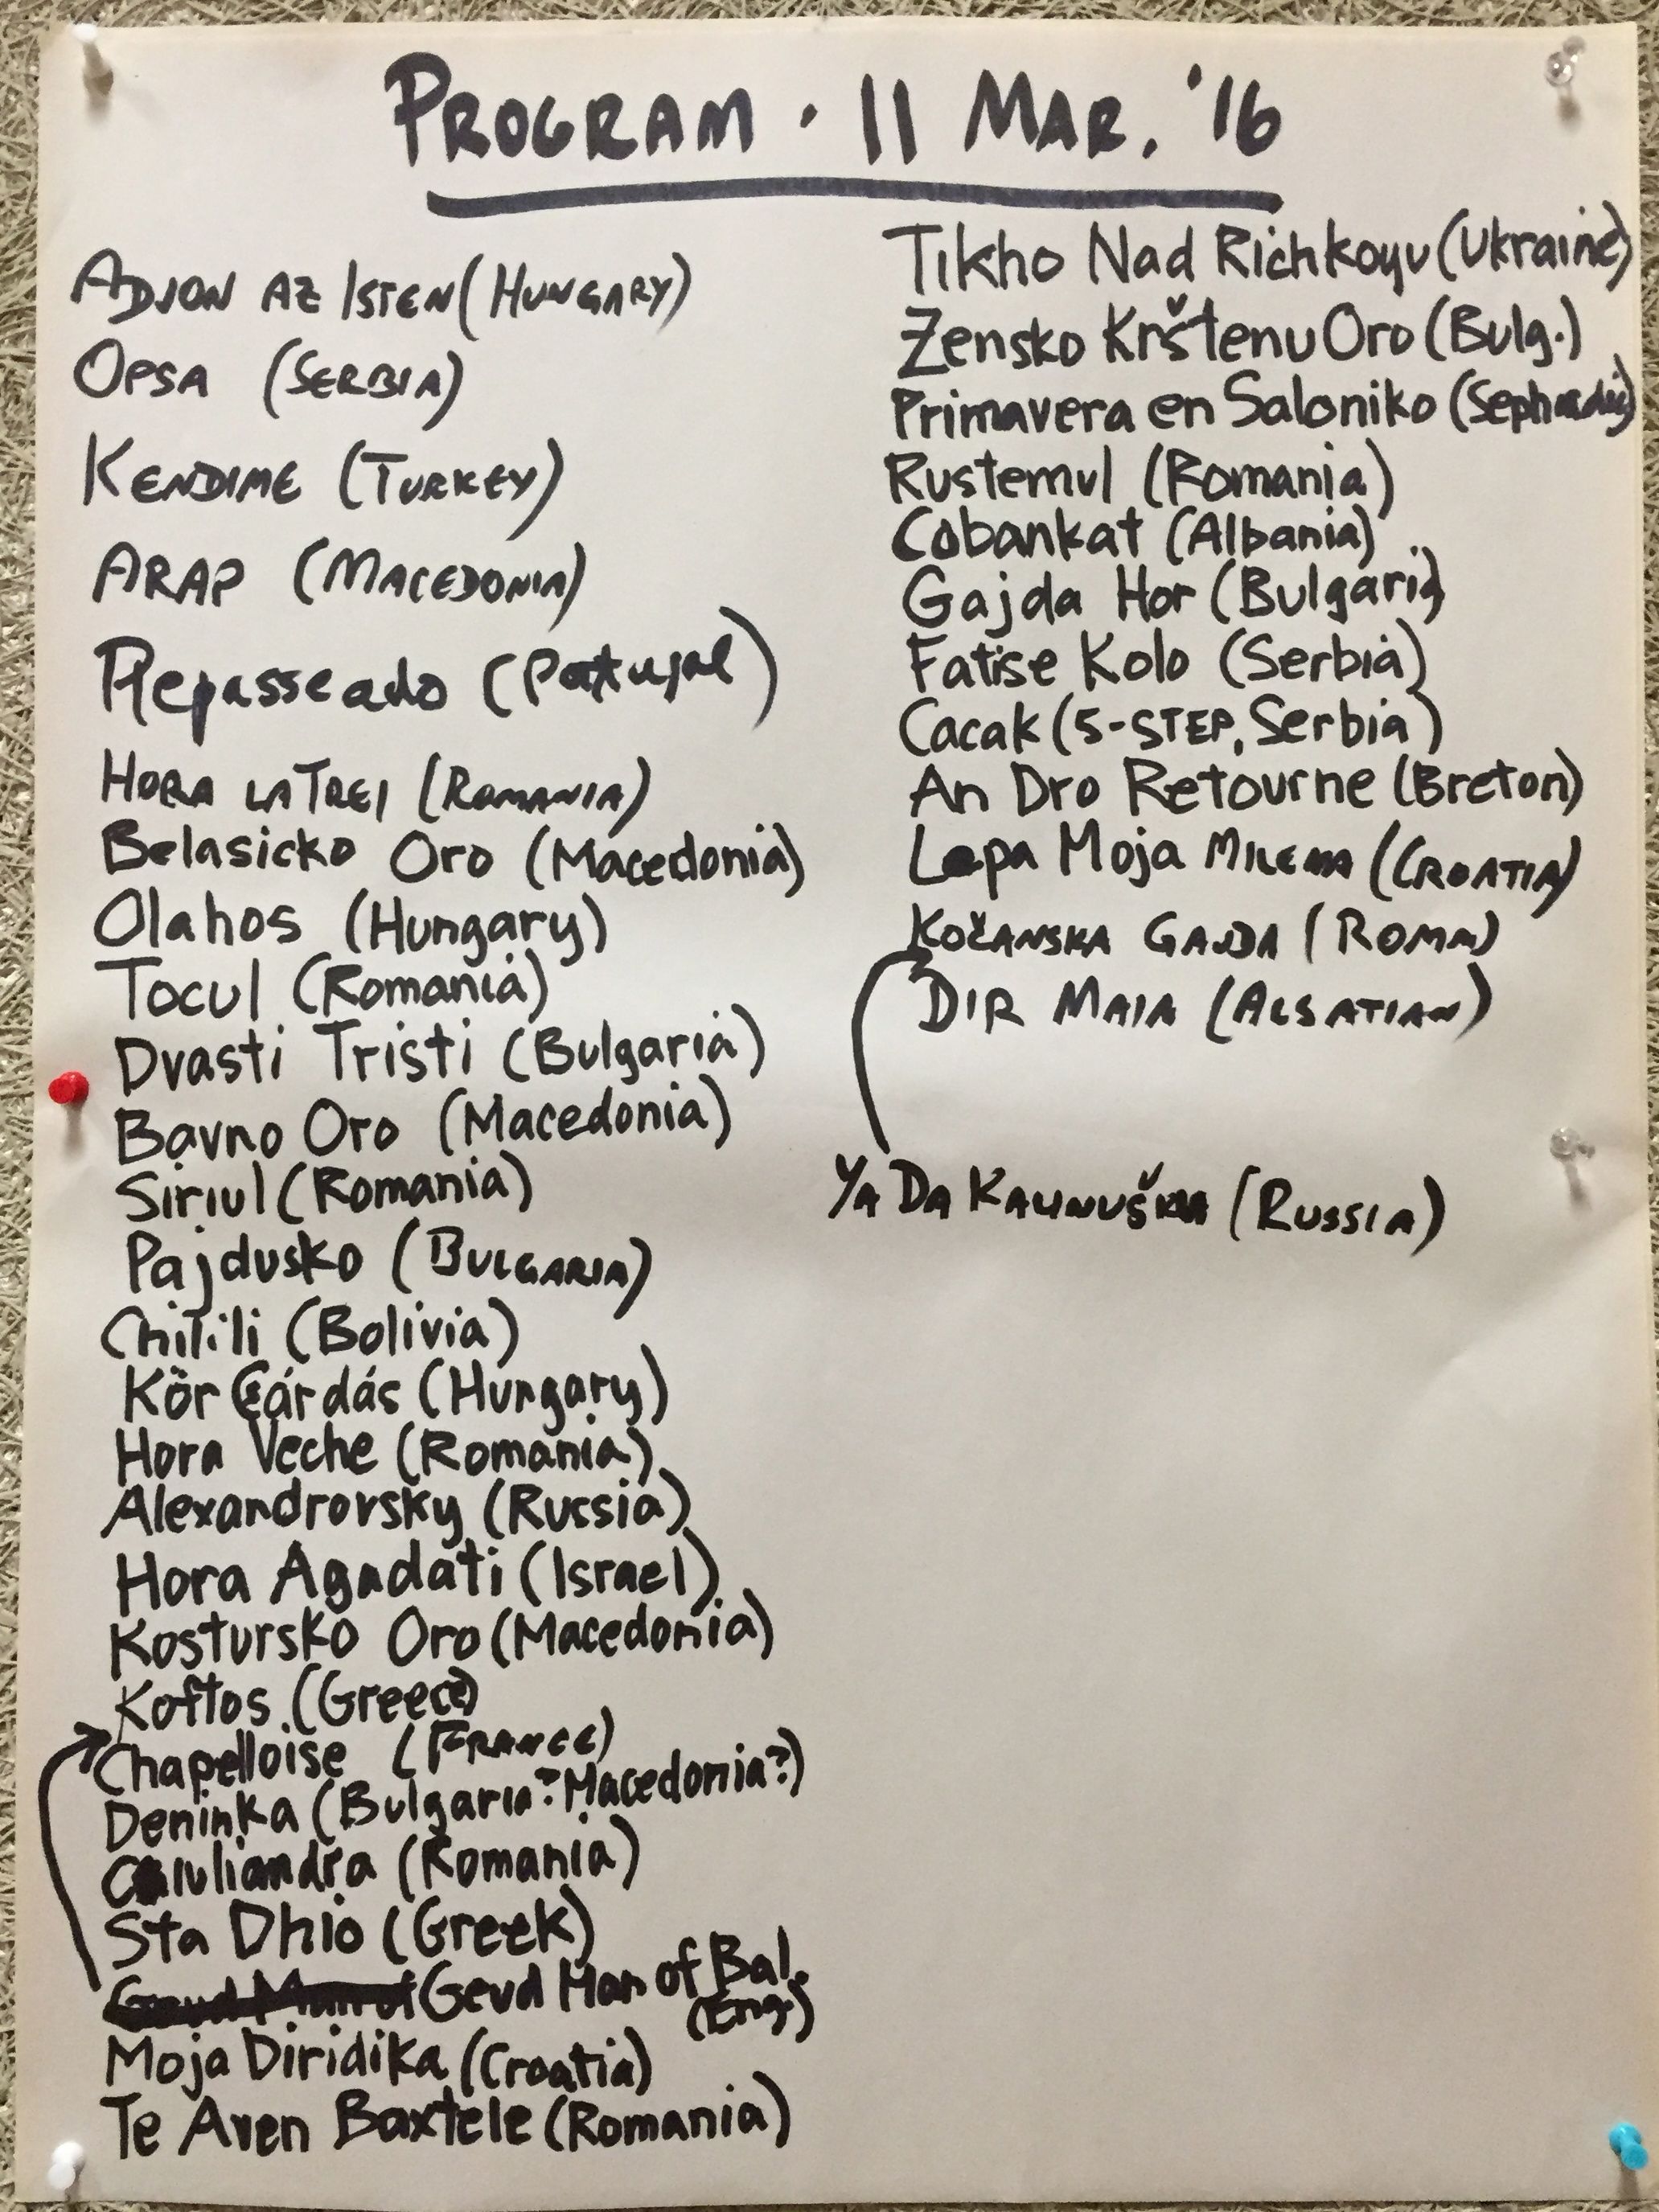 PROGRAM · 11 MAR. '16
ADJON AZ ISTEN (HUNGARY)
OPSA (SERBIA)
KENDIME (TURKEY)
ARAP (MACEDONIA)
Repasseado (Portugal)
HORA LA TREI (ROMANIA)
Belasicko Oro (Macedonia)
Olahos (Hungary)
Tocul (Romania)
Dvasti Tristi (Bulgaria)
Bavno Oro (Macedonia)
Siriul (Romania)
Pajdusko (BULGARIA)
Chilili (Bolivia)
Kör Cárdás (Hungary)
Hora Veche (Romania)
Alexandrovsky (Russia)
Hora Agadati (Israel)
Kostursko Oro (Macedonia)
Koftos (Greece)
Chapelloise (FRANCE)
Deninka (Bulgaria? Macedonia?)
Ciuliandra (Romania)
Sta Dhio (Greek)
Geud Man of Geud Man of Bal.
(Eng.)
Moja Diridika (Croatia)
Te Aven Baxtele (Romania)
Tikho Nad Richkoyu (Ukraine)
Zensko Krštenu Oro (Bulg.)
Primavera en Saloniko (Sephardic)
Rustemul (Romania)
Cobankat (Albania)
Gajda Hor (Bulgaria)
Fatise Kolo (Serbia)
Cacak (5-STEP, Serbia)
An Dro Retourne (Breton)
Lepa Moja MILENA (CROATIA)
KOČANSKA GAJDA (ROMA)
DIR MAIA (ALSATIAN)
YA DA KALINUŠKA (RUSSIA)